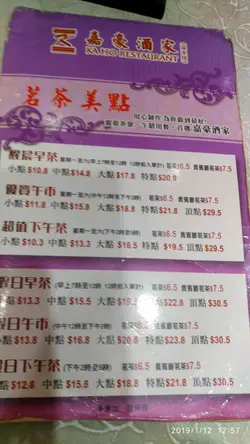 嘉豪酒家
KA HO RESTAURANT
茗茶美點
用心制作 為你做到最好!
嘉豪酒家
醒晨早茶 星期一至六(早上7時至12時 12時前入單計) 茗茶$6.5 貴賓廳茗茶$7.5
小點 $10.8 中點 $14.8 大點 $17.8 特點 $20.8
優質午市 星期一至六(中午12時至下午2時) 茗茶$6.5 貴賓廳茗茶$7.5
小點 $11.8 中點 $15.8 大點 $18.8 特點 $21.8 頂點 $29.5
超值下午茶 星期一至六(下午2時至5時) 茗茶$6.5 貴賓廳茗茶$7.5
小點 $10.3 中點 $13.3 大點 $16.5 特點 $19.5 頂點 $29.5
假日早茶 (早上7時至12時 12時前入單計) 茗茶$6.5 貴賓廳茗茶$7.5
點 $13.3 中點 $15.5 大點 $19.5 特點 $22.8 頂點 $30.5
假日午市 (中午12時至下午2時) 茗茶$6.5 貴賓廳茗茶$7.5
點 $13.8 中點 $16.8 大點 $20.8 特點 $23.8 頂點 $30.5
假日下午茶 (下午2時至5時) 茗茶$6.5 貴賓廳茗茶$7.5
點 $12.8 中點 $15.8 大點 $18.8 特點 $21.8 頂點 $30.5
2019/1/12 12:57